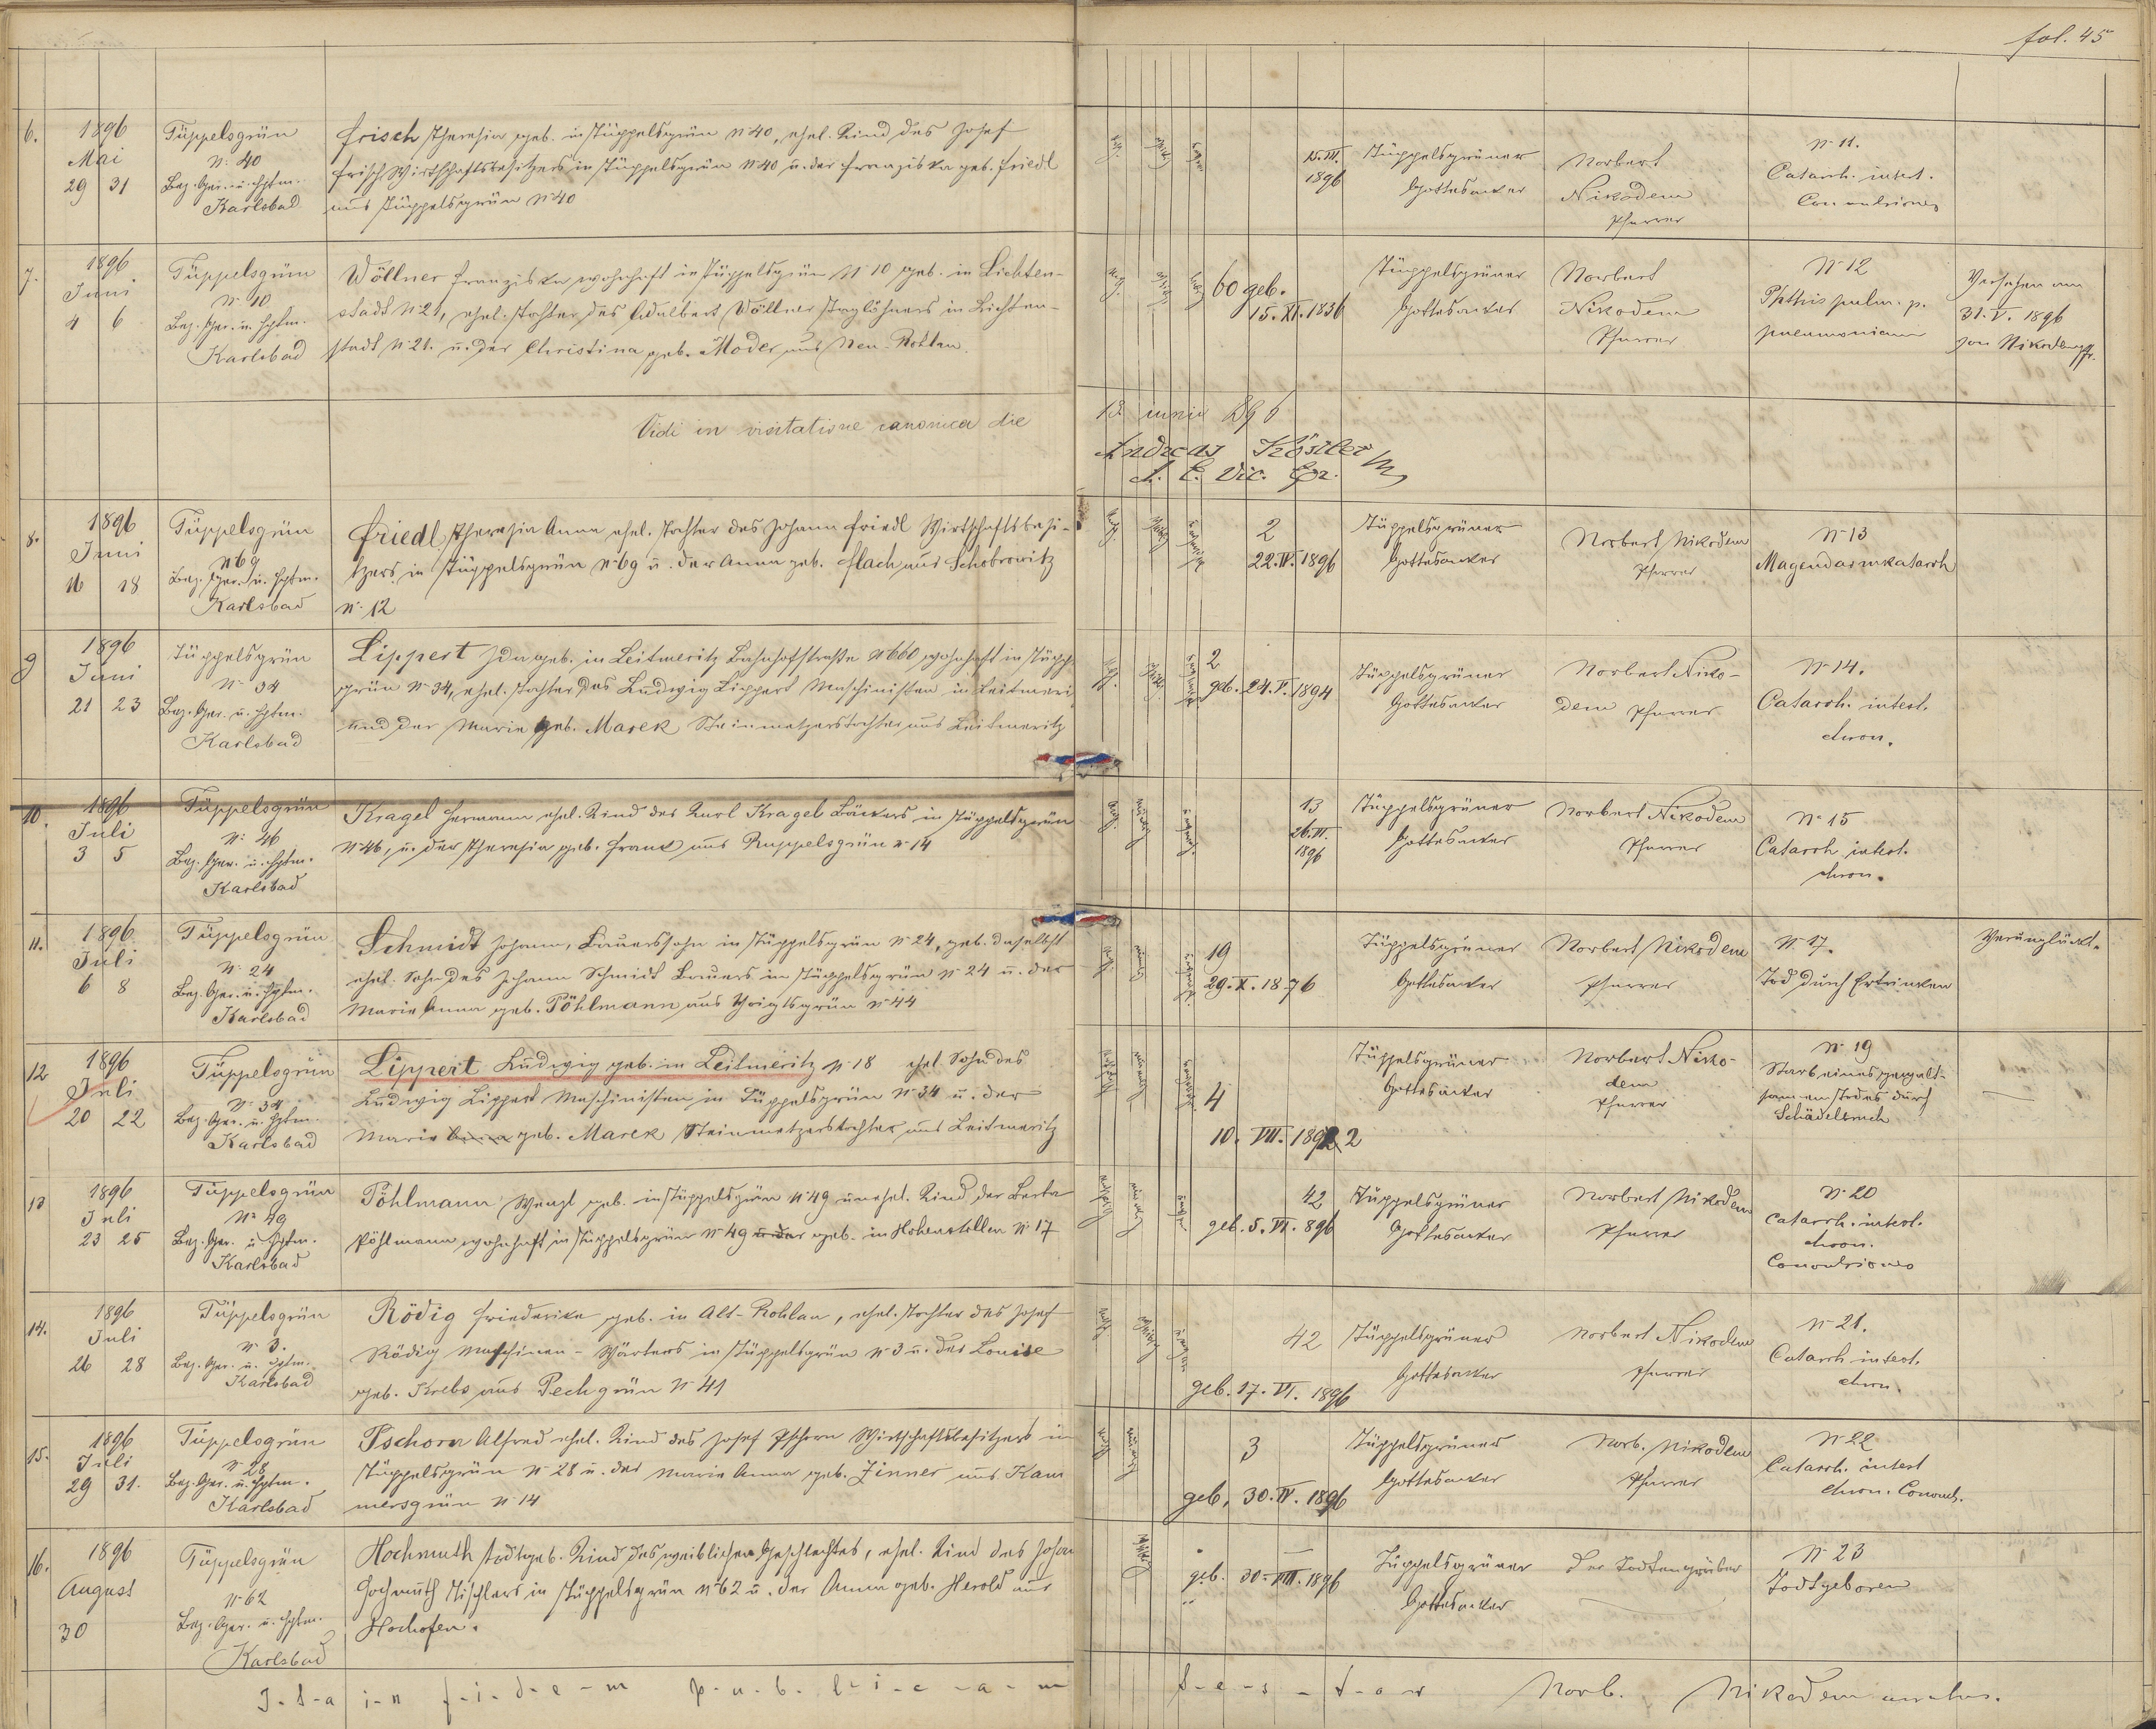 fol. 45
6.
1896
Mai
29 31
Tüppelsgrün
N: 40
Bez. Ger. u. Hptm.
Karlsbad
Frisch Theresia geb. in Tüppelsgrün N 40, ehel. Kind des Josef
Frisch Wirthschaftsbesitzers in Tüppelsgrün N 40 u. der Franziska geb. Friedl
aus Tüppelsgrün N 40
15. III.
1896
Tüppelsgrüner
Gottesacker
Norbert
Nikodem
Pfarrer
N 11.
Catarrh. intest.
Convulsiones
7.
1896
Juni
4 6
Tüppelsgrün
N. 10
Bez. Ger. u. Hptm.
Karlsbad
Wöllner Franziska wohnhaft in Tüppelsgrün N 10 geb. in Lichten-
stadt N 21, ehel. Tochter des Adalbert Wöllner Taglöhners in Lichten-
stadt N 21. u. der Christina geb. Moder aus Neu-Rohlau
60 geb.
15. XI. 1836
Tüppelsgrüner
Gottesacker
Norbert
Nikodem
Pfarrer
N 12
Phthis pulm. p.
pneumoniam
Versehen am
31. V. 1896
von Nikodem Pfr.
Vidi in visitatione canonica die
13. iunii 896
Andreas Köstler
Vic.
8.
1896
Juni
16 18
Tüppelsgrün
N 69
Bez. Ger. u. Hptm.
Karlsbad
Friedl Theresia Anna ehel. Tochter des Johann Friedl Wirtschaftsbesi-
tzers in Tüppelsgrün N 69 u. der Anna geb. Flach aus Schobrowitz
N. 12
2
22. IV. 1896
Tüppelsgrüner
Gottesacker
Norbert Nikodem
Pfarrer
N 13
Magendarmkatarrh
9
1896
Juni
21 23
Tüppelsgrün
N 34
Bez. Ger. u. Hptm.
Karlsbad
Lippert Ida geb. in Leitmeritz Bahnhofstraße N 660 wohnhaft in Tüppels
grün N 34, ehel. Tochter des Ludwig Lippert Maschinisten in Leitmeri
und der Marie geb. Marek Steinmetzerstochter aus Leitmeritz
2
geb. 24. V. 1894
Tüppelsgrüner
Gottesacker
Norbert Niko-
dem Pfarrer
N 14.
Catarrh. intest.
chron.
10.
1896
Juli
3 5
Tüppelsgrün
N: 46
Bez. Ger. u. Hptm.
Karlsbad
Kragel Hermann ehel. Kind des Karl Kragel Bäckers in Tüppelsgrün
N 46, u. der Theresia geb. Frank aus Ruppelsgrün N 14
13
26. VI.
1896
Tüppelsgrüner
Gottesacker
Norbert Nikodem
Pfarrer
N 15
Catarrh intest.
chron.
11.
1896
Juli
6 8
Tüppelsgrün
N: 24
Bez. Ger. u. Hptm.
Karlsbad
Schmidt Johann, Bauerssohn in Tüppelsgrün N 24, geb. daselbst
ehel. Sohn des Johann Schmidt Bauers in Tüppelsgrün N 24 u. der
Maria Anna geb. Pöhlmann aus Voigtsgrün N 44
19
29. X. 1876
Tüppelsgrüner
Gottesacker
Norbert Nikodem
Pfarrer
N 17.
Tod durch Ertrinken
Verunglückt.
12
1896
Juli
20 22
Tüppelsgrün
N. 34
Bez. Ger. u. Hptm.
Karlsbad
Lippert Ludwig geb. in Leitmeritz N 18 ehel. Sohn des
Ludwig Lippert Maschinisten in Tüppelsgrün N 34 u. der
Marie Anna geb. Marek Steinmetzerstochter aus Leitmeritz
4
10. VIII. 1892 2
Tüppelsgrüner
Gottesacker
Norbert Niko-
dem
Pfarrer
N 19
Starb eines gewalt-
samen Todes durch
Schädelbruch
13
1896
Juli
23 25
Tüppelsgrün
N 49
Bez. Ger. u. Hptm.
Karlsbad
Pöhlmann Wenzl geb. in Tüppelsgrün N 49 unehel. Kind der Berta
Pöhlmann wohnhaft in Tüppelsgrün N 49 u. der geb. in Hohenstollen N 17
42
geb. 5. VI. 896
Tüppelsgrüner
Gottesacker
Norbert Nikodem
Pfarrer
N 20
Catarrh. intest.
chron.
Convulsiones
14.
1896
Juli
26 28
Tüppelsgrün
N 3.
Bez. Ger. u. Hptm.
Karlsbad
Rödig Friederike geb. in Alt-Rohlau, ehel. Tochter des Josef
Rödig Maschinen-Wärters in Tüppelsgrün N 3 u. der Louise
geb. Krebs aus Pechgrün N 41
42
geb. 17. VI. 1896
Tüppelsgrüner
Gottesacker
Norbert Nikodem
Pfarrer
N 21.
Catarrh intest.
chron.
15.
1896
Juli
29 31.
Tüppelsgrün
N 28
Bez. Ger. u. Hptm.
Karlsbad
Pschorn Alfred ehel. Kind des Josef Pschorn Wirtschaftsbesitzers in
Tüppelsgrün N 28 u. der Maria Anna geb. Zinner aus Kam
mersgrün N 14
3
geb. 30. IV. 1896
Tüppelsgrüner
Gottesacker
Norb. Nikodem
Pfarrer
N 22
Catarrh. intest
chron. Convuls.
16.
1896
August
30
Tüppelsgrün
N 62
Bez. Ger. u. Hptm.
Karlsbad
Hochmuth todtgeb. Kind des weiblichen Geschlechtes, ehel. Kind des Johan
Hochmuth Tischlers in Tüppelsgrün N 62 u. der Anna geb. Herold aus
Hochofen.
geb. 30. VIII. 1896
Tüppelsgrüner
Gottesacker
Der Todtengräber
N 23
Todtgeboren
I-t-a i-n f-i-d-e-m p-u-b-l-i-c-a-m
t-e-s-t-o-r Norb. Nikodem